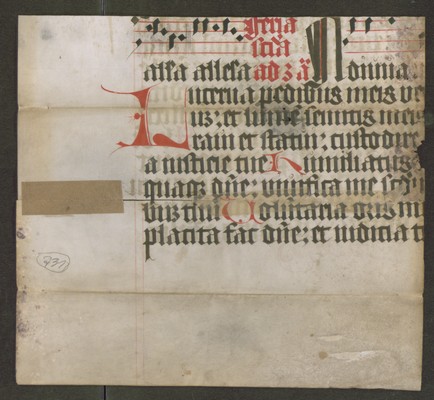 feria
scda
ad
Lucerna pedibus meis ve
et lumē semitis meis
raui et statui: custodire
a iusticie tue Humiliatus
quaqȝ dn̄e: viuifica me scd̄m
bum tuū Voluntaria oris m
placita fac dn̄e: et iudicia t
731